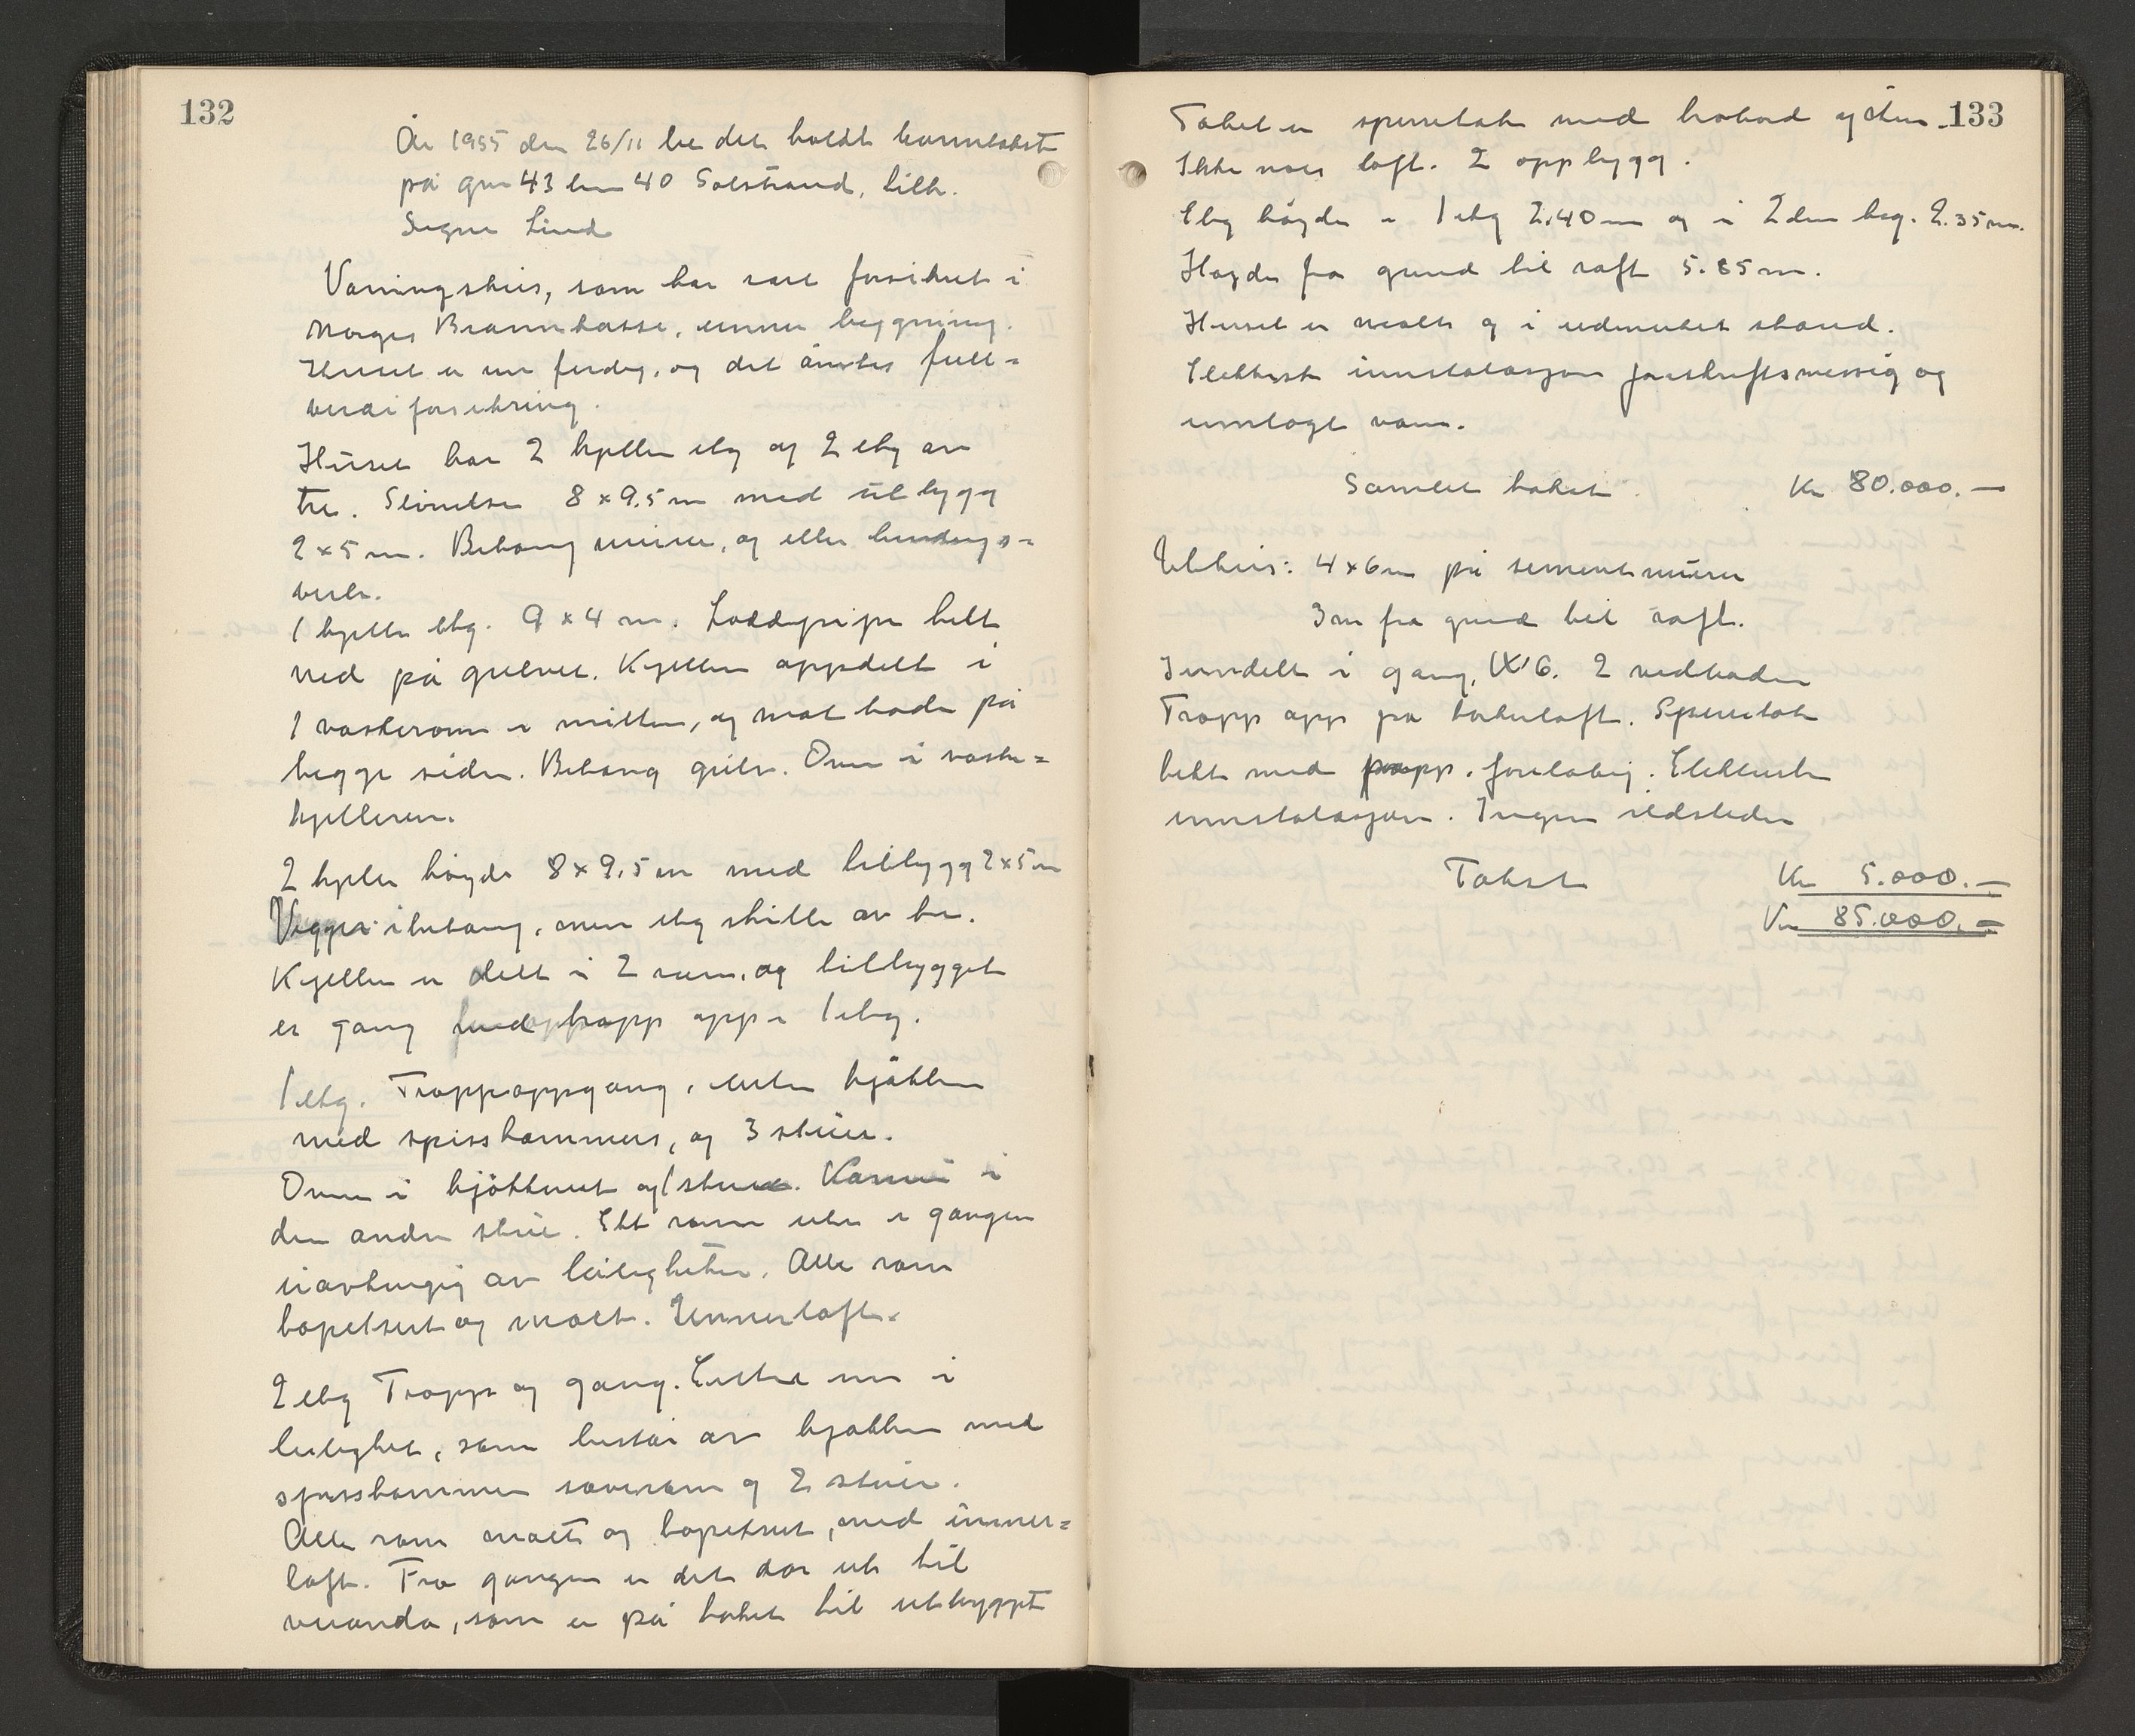 132
År 1955 den 26/11 ble det holdt branntakst
på gnr 43 bnr 40 Solstrand, tilh.
Signe Lind
Våningshus, som har vært forsikret i
Norges Brannkasse, unner bygning.
Huset er nu ferdig, og det ønskes full=
verdi forsikring.
Huset har 2 kjeller etg og 2 etg av
tre. Størrelse 8 x 9.5 m med tilbygg
2 x 5 m. Betong murer, og eller bindings=
verk.
1 kjeller etg. 9 x 4 m. Loddpipe helt
ned på gulvet. Kjelleren oppdelt i
1 vaskerom i mitten, og mat boder på
begge sider. Betong gulv. Ovn i vaske=
kjelleren.
2 kjeller høyde 8 x 9.5 m med tilbygg 2 x 5 m
Vegger i betong, men etg skille av tre.
Kjelleren er delt i 2 rum, og tilbygget
er gang med trapp opp i 1 etg.
1 etg. Trappoppgang, entre kjøkken
med spisskammers, og 3 stuer.
Ovn i kjøkkenet og 1 stue. Kamin i
den andre stue. Ett rom ute i gangen
uavhengig av leiligheten. Alle rom
tapetsert og malt. Unnerloft.
2 etg Trapp og gang. Entre inn i
leilighet, som består av kjøkken med
spisskammer soverom og 2 stuer.
Alle rom malt og tapetsert, med unner=
loft. Fra gangen er det dør ut til
veranda, som er på taket til utbygget
133
Taket er sperretak med trobord og sten.
Ikke noe loft. 2 oppbygg.
Etg høyde i 1 etg 2.40 m og i 2den etg. 2.35 m.
Høyde fra grund til raft 5.85 m.
Huset er malt og i utmerket stand.
Elektrisk innstalasjon forskriftsmessig og
innlagt vann.
Samlet takst Kr 80.000.—
Uthus: 4 x 6 m på sementmurer
3 m fra grund til raft.
Inndelt i gang, W.C. 2 vedboder
Trapp opp på tørkeloft. Sperretak
tekt med papp, foreløbig. Elektrisk
innstalasjon. Ingen ildsteder
Takst Kr 5.000.—
Kr 85.000.—